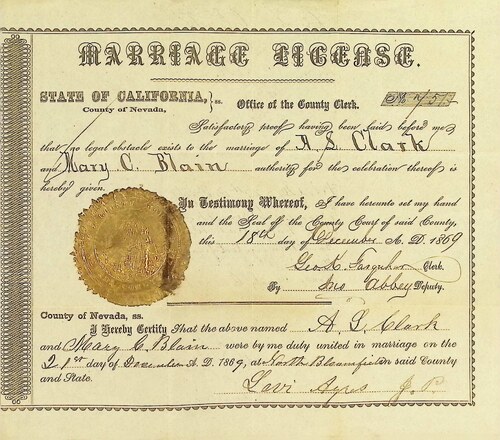 MARRIAGE LICENSE.
STATE OF CALIFORNIA, ss. Office of the County Clerk.
County of Nevada,
Satisfactory proof having been laid before me
that no legal obstacle exists to the marriage of A S. Clark
and Mary C. Blain authority for the celebration thereof is
hereby given.
In Testimony Whereof, I have hereunto set my hand
and the Seal of the County Court of said County,
this 18th day of December A. D. 1869
Geo. K. Farquhar Clerk.
By Jno Abbey Deputy.
County of Nevada, ss.
I Hereby Certify That the above named A. S. Clark
and Mary C. Blain were by me duly united in marriage on the
21st day of December A. D. 1869, at North Bloomfield in said County
and State.
Levi Ayres J. P.